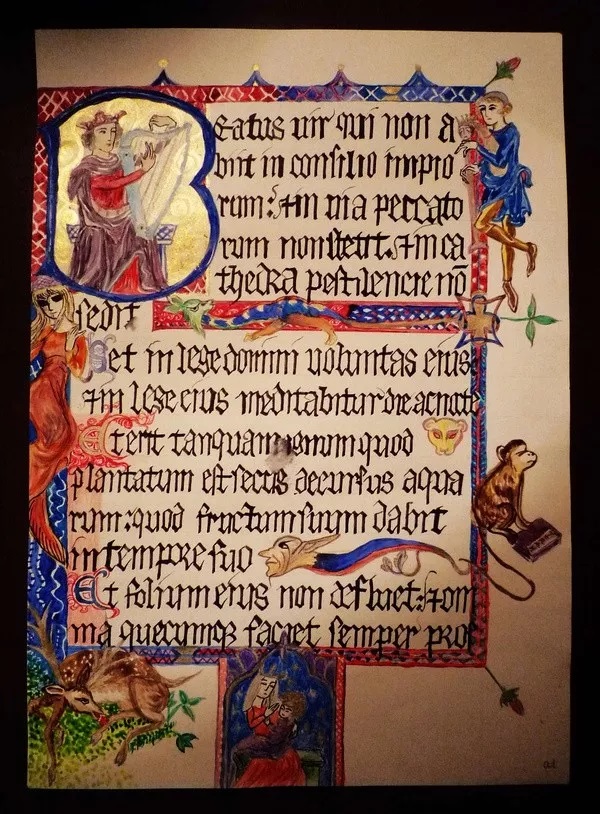 Beatus vir qui non a
biit in consilio impio
rum: et in via peccato
rum non stetit. et in ca
thedra pestilencie nō
sedit
Set in lege domini voluntas eius
et in lege eius meditabitur die ac nocte
Et erit tanquam lignum quod
plantatum est secus decursus aqua
rum: quod fructum suum dabit
in tempre suo
Et folium eius non defluet: et om
nia quecumq faciet semper pros